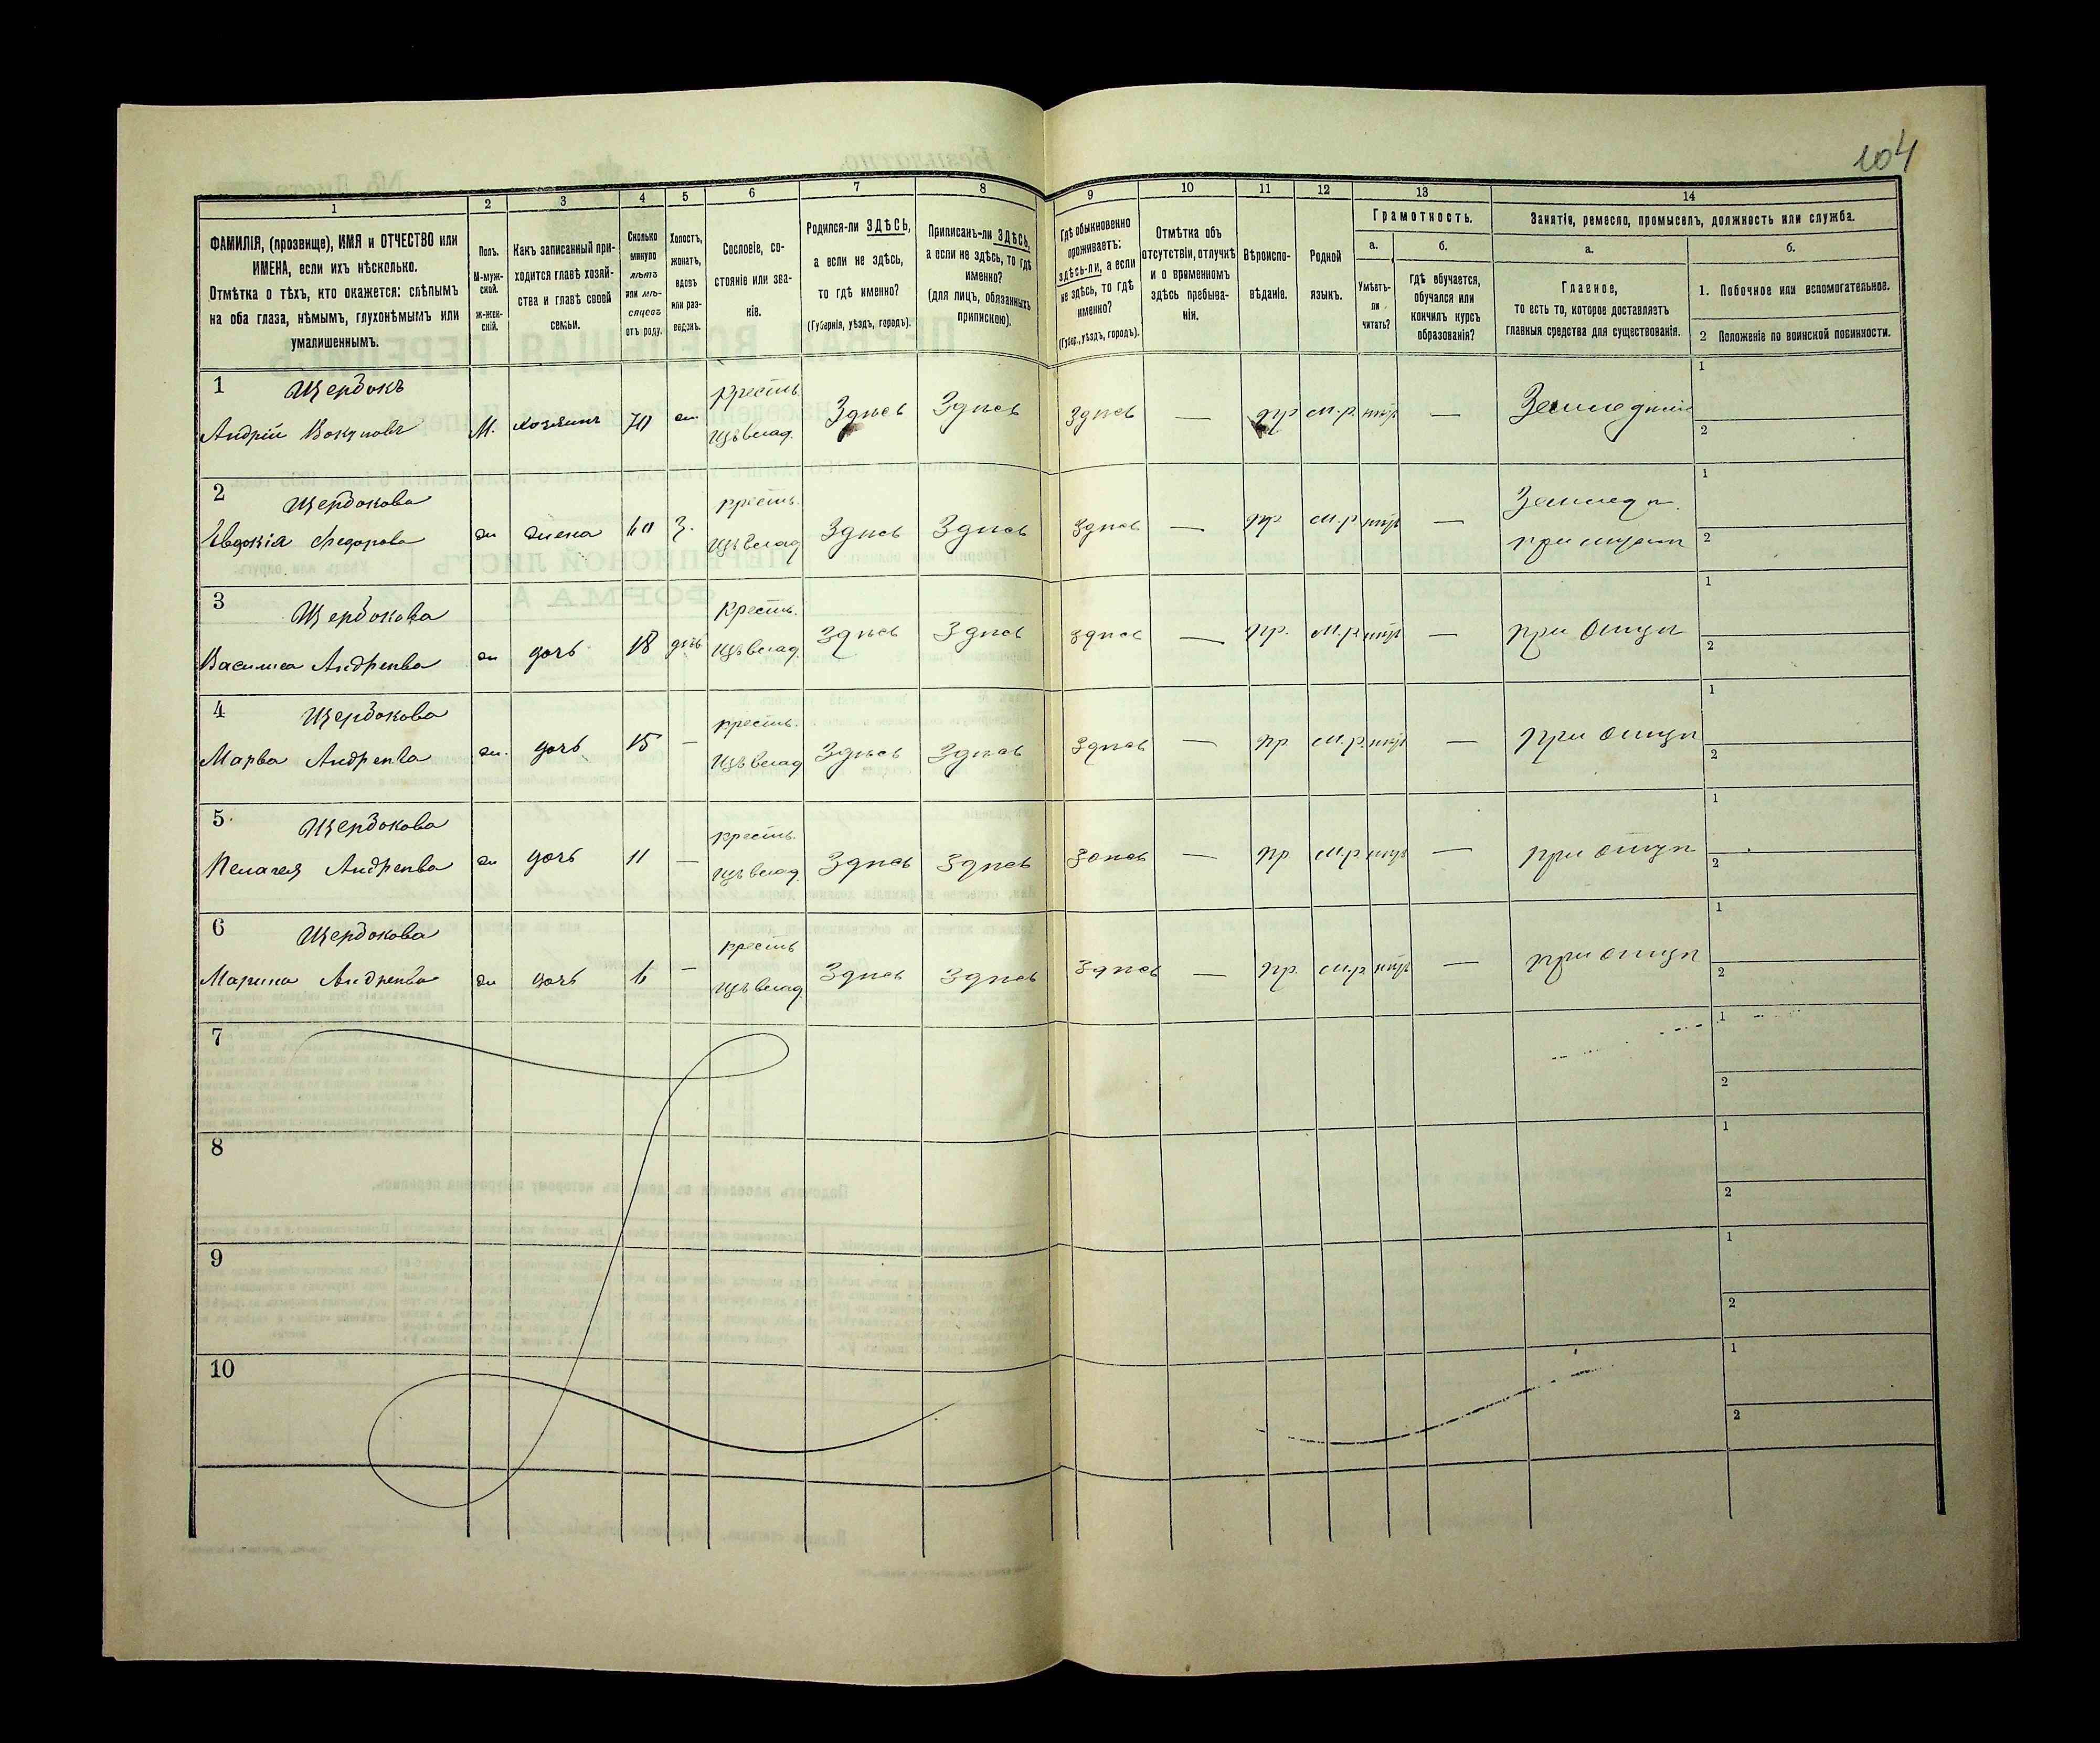 104
1 2 3 4 5 6 7 8 9 10 11 12 13 14
ФАМИЛІЯ, (прозвище), ИМЯ и ОТЧЕСТВО или
ИМЕНА, если ихъ нѣсколько.
Отмѣтка о тѣхъ, кто окажется: слѣпымъ
на оба глаза, нѣмымъ, глухонѣмымъ или
умалишеннымъ.
Полъ.
М-муж-
ской.
ж-жен-
скій.
Какъ записанный при-
ходится главѣ хозяй-
ства и главѣ своей
семьи.
Сколько
минуло
лѣтъ
или мѣ-
сяцевъ
отъ роду.
Холостъ,
женатъ,
вдовъ
или раз-
веденъ.
Сословіе, со-
стояніе или зва-
ніе.
Родился-ли ЗДѢСЬ,
а если не здѣсь,
то гдѣ именно?
(Губернія, уѣздъ, городъ).
Приписанъ-ли ЗДѢСЬ,
а если не здѣсь, то гдѣ
именно?
(для лицъ, обязанныхъ
припискою).
Гдѣ обыкновенно
проживаетъ:
здѣсь-ли, а если
не здѣсь, то гдѣ
именно?
(Губер., уѣздъ, городъ).
Отмѣтка объ
отсутствіи, отлучкѣ
и о временномъ
здѣсь пребыва-
ніи.
Вѣроиспо-
вѣданіе.
Родной
языкъ.
Грамотность.
а.
Умѣетъ-
ли
читать?
б.
Гдѣ обучается,
обучался или
кончилъ курсъ
образованія?
Занятіе, ремесло, промыселъ, должность или служба.
а.
Главное,
то есть то, которое доставляетъ
главныя средства для существованія.
б.
1. Побочное или вспомогательное.
2 Положеніе по воинской повинности.
1 Щербокъ кресть. 1
Андрій М. хозяинъ 70 Здѣсь Здѣсь Здѣсь — пр м.р. — 2
2 Щербокова кресть. 1
Евдокія Федорова ж жена 60 Здѣсь Здѣсь Здѣсь — пр м.р — при мужѣ 2
3 Щербокова кресть. 1
Василиса Андреева ж дочь 18 Здѣсь Здѣсь Здѣсь — пр. м.р. — при отцѣ 2
4 Щербокова кресть. 1
Марва Андреева ж. дочь 15 — Здѣсь Здѣсь Здѣсь — пр м.р. — при отцѣ 2
5 Щербокова кресть. 1
Пелагея Андреева ж дочь 11 — Здѣсь Здѣсь Здѣсь — пр. м.р. — при отцѣ 2
6 Щербокова кресть 1
Марина Андреева ж дочь 6 — Здѣсь Здѣсь Здѣсь — пр. м.р. — при отцѣ 2
7 1
2
8 1
2
9 1
2
10 1
2